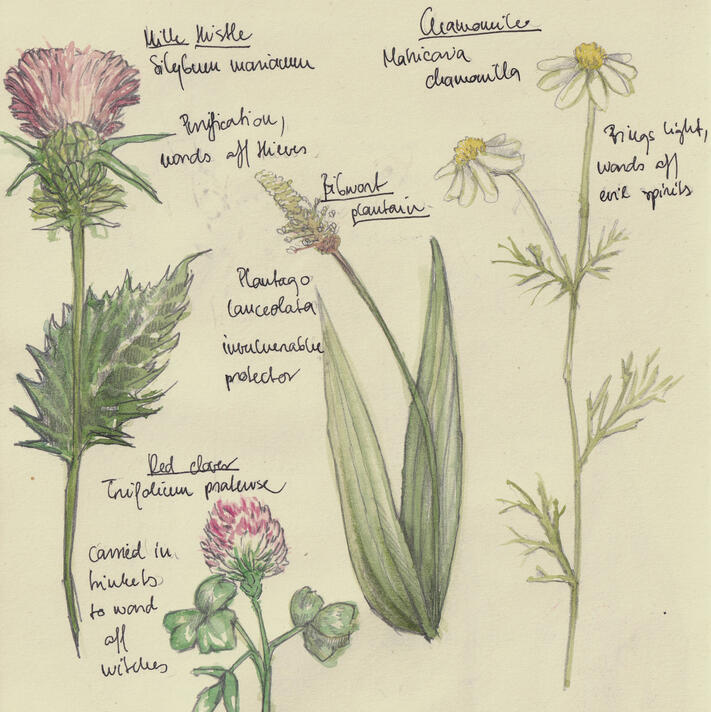 Milk thistle
Silybum marianum
Purification,
wards off thieves
Chamomile
Matricaria
chamomilla
Brings light,
wards off
evil spirits
Ribwort
plantain
Plantago
lanceolata
invulnerable
protector
Red clover
Trifolium pratense
Carried in
trinkets
to ward
off
witches